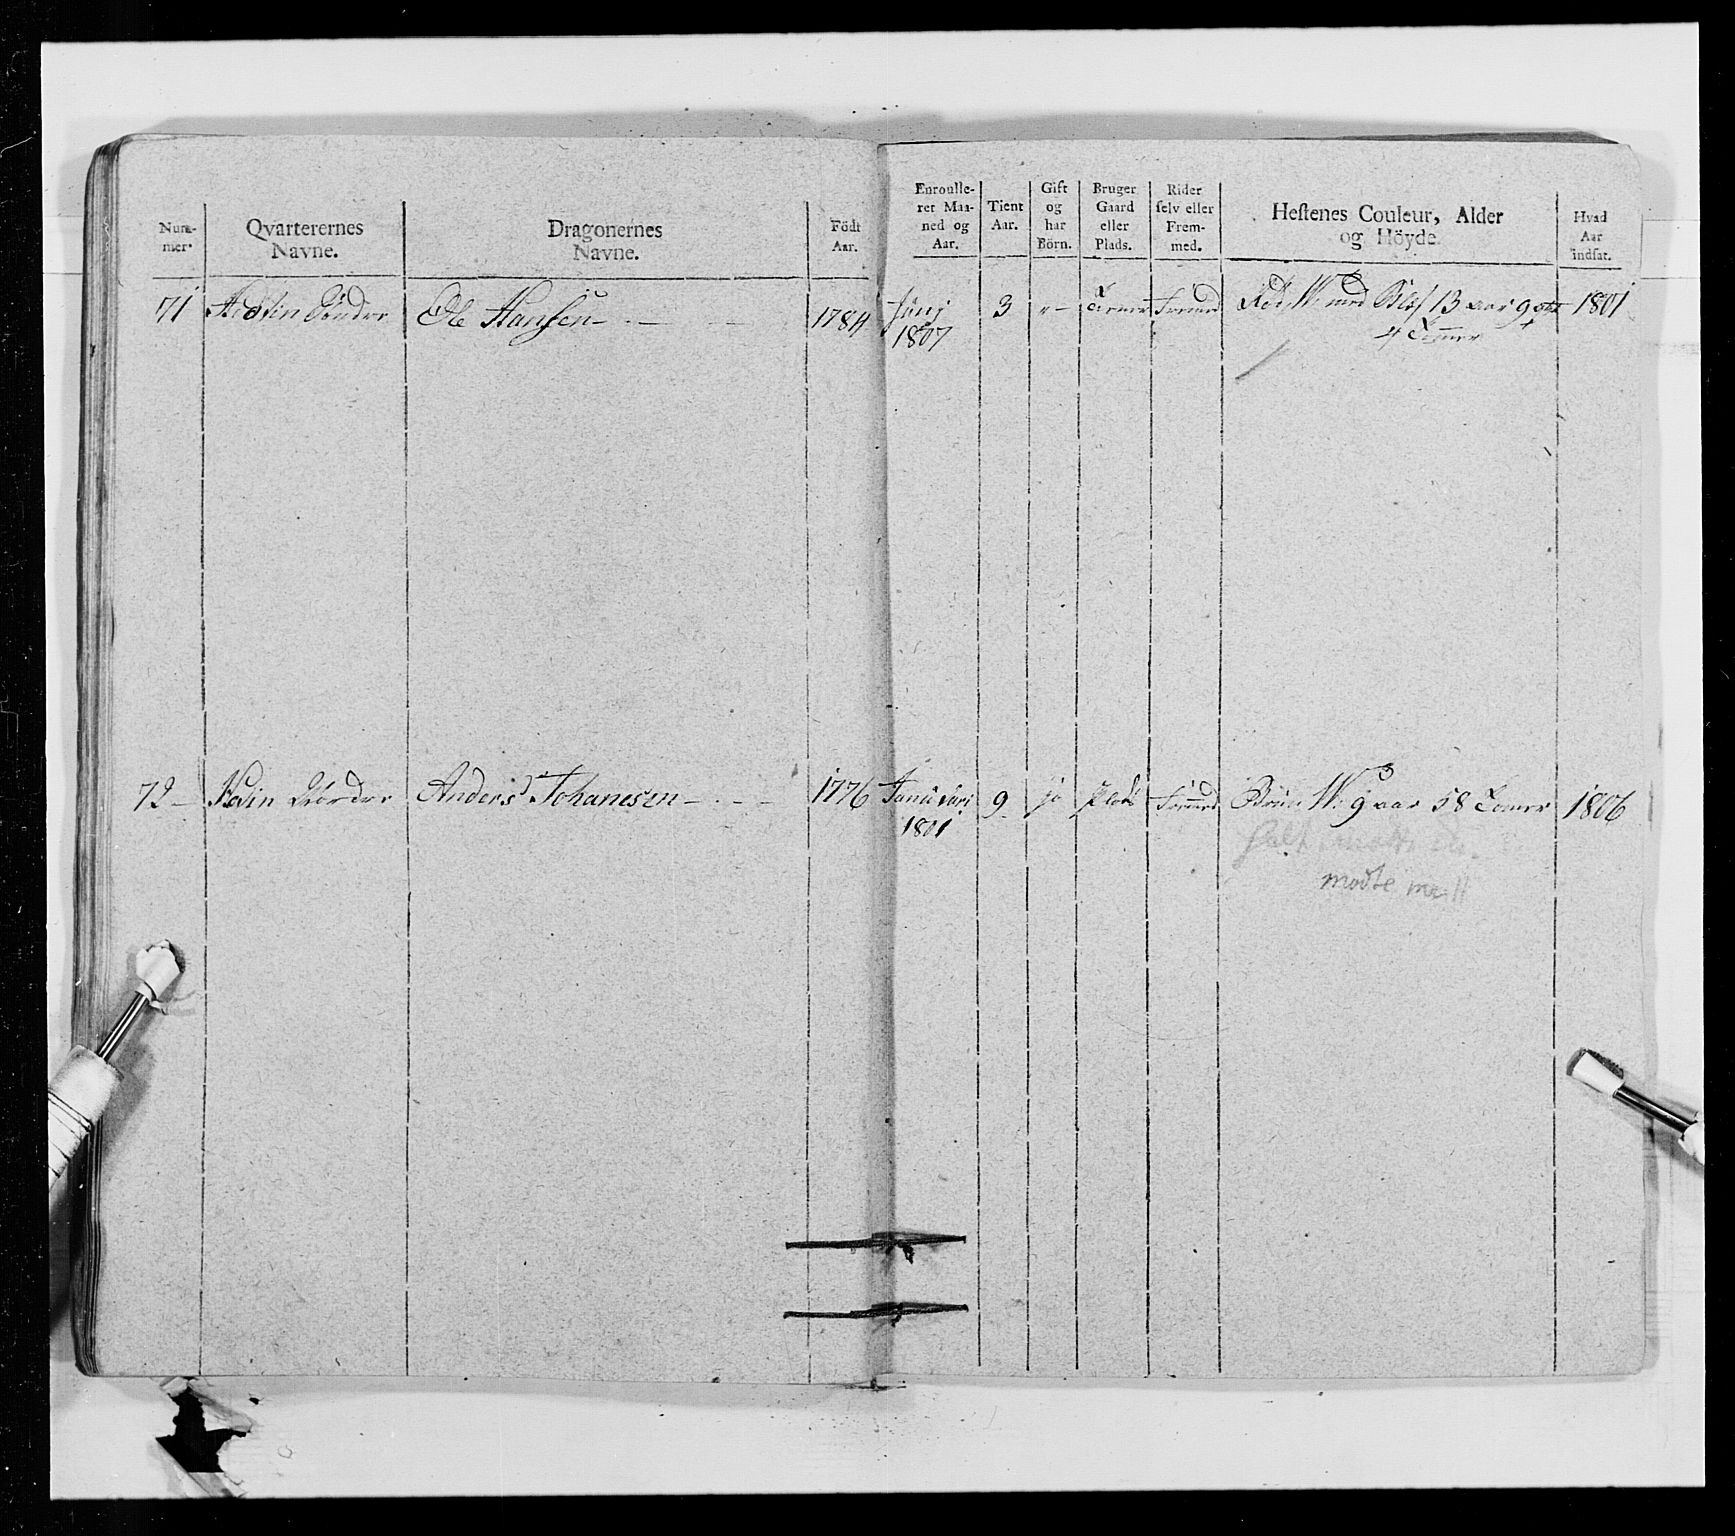 Num-
mer.
Qvarterernes
Navne.
Dragonernes
Navne.
Födt
Aar.
Enroulle-
ret Maa-
ned og
Aar.
Tient
Aar.
Gift
og
har
Börn.
Bruger
Gaard
eller
Plads.
Rider
selv eller
Frem-
med.
Hestenes Couleur, Alder
og Höyde.
Hvad
Aar
indsat.
71 Söndre Ole Hansen 1784 Junj 3 Fremd Röd W. med Bles 13 aar 9 1801
1807 4 Tommer
72 Nordre Anders Johanesen 1776 Januari 9 ja Plads Fremd Brun W. 9 aar 58 Tomer 1806
1801
modte